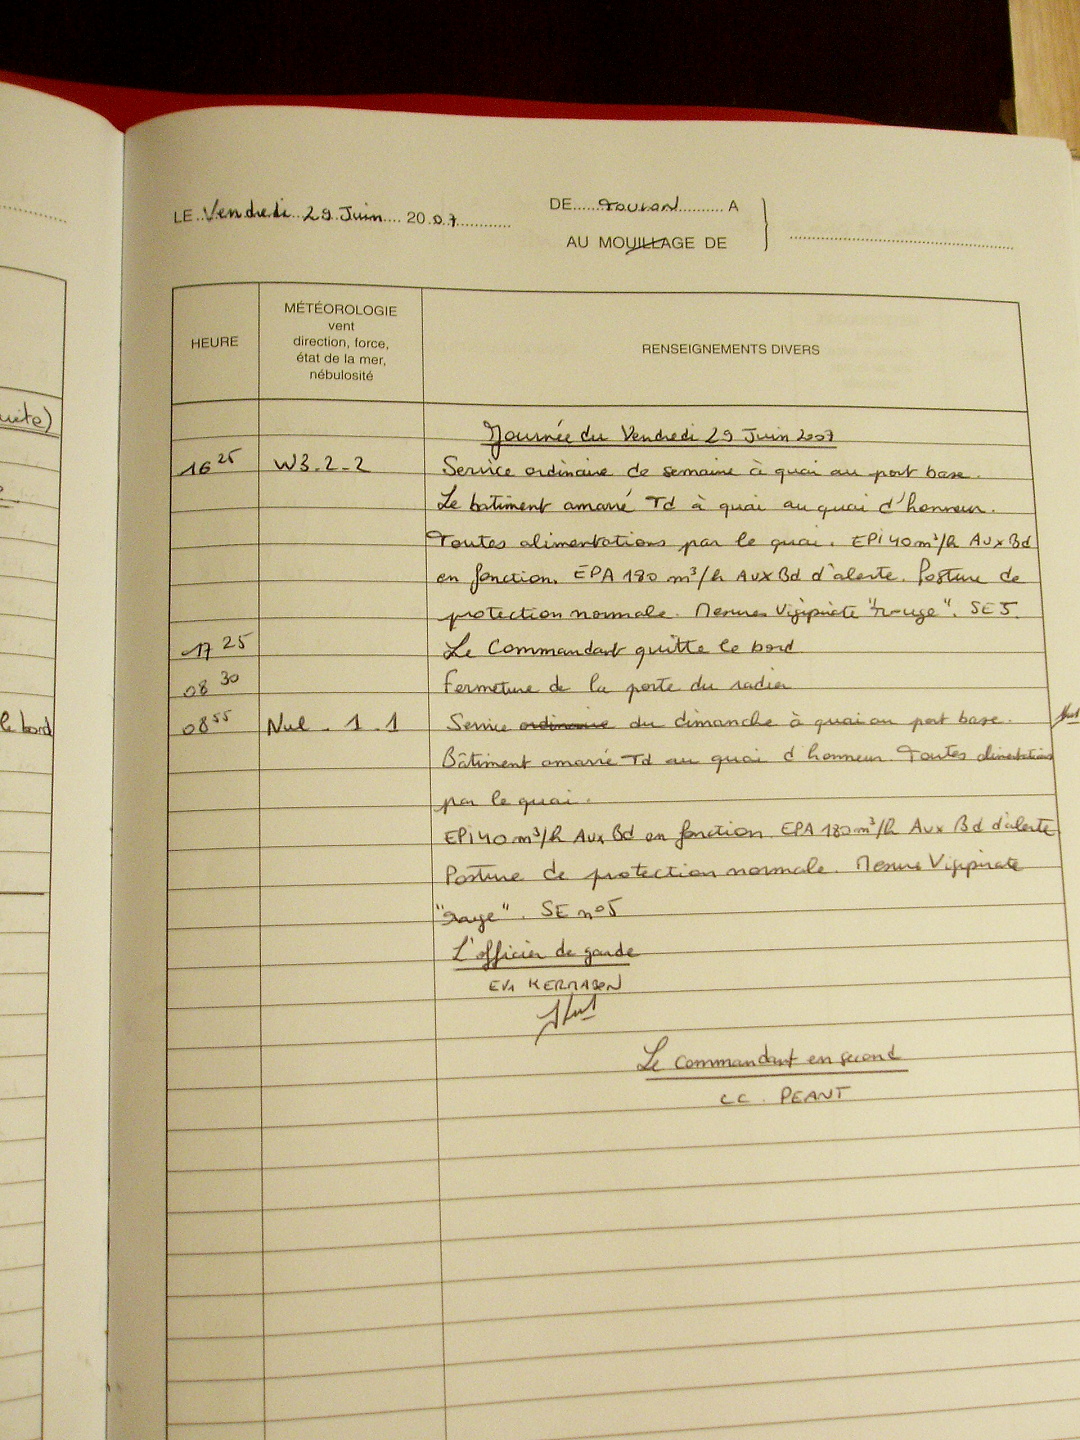 LE Vendredi 29 Juin 2007
DE Toulon A
AU MOUILLAGE DE
HEURE
MÉTÉOROLOGIE
vent
direction, force,
état de la mer,
nébulosité
RENSEIGNEMENTS DIVERS
Journée du Vendredi 29 Juin 2007
16 25 W3-2-2 Service ordinaire de semaine à quai au port base.
Le bâtiment amarré Td à quai au quai d'honneur.
Toutes alimentations par le quai. EPI 40 m³/h Aux Bd
en fonction. EPA 180 m³/h Aux Bd d'alerte. Posture de
protection normale. Mesures Vigipirate "rouge". SE 5.
17 25 Le Commandant quitte le bord
08 30 Fermeture de la porte du radier
08 55 Nul - 1 - 1 Service ordinaire du dimanche à quai au port base.
Bâtiment amarré Td au quai d'honneur. Toutes alimentations
par le quai.
EPI 40 m³/h Aux Bd en fonction. EPA 180 m³/h Aux Bd d'alerte
Posture de protection normale. Mesure Vigipirate
"rouge". SE n°5
L'officier de garde
EV1 KERMABON
Le Commandant en second
CC. PEANT
uite)
le bord